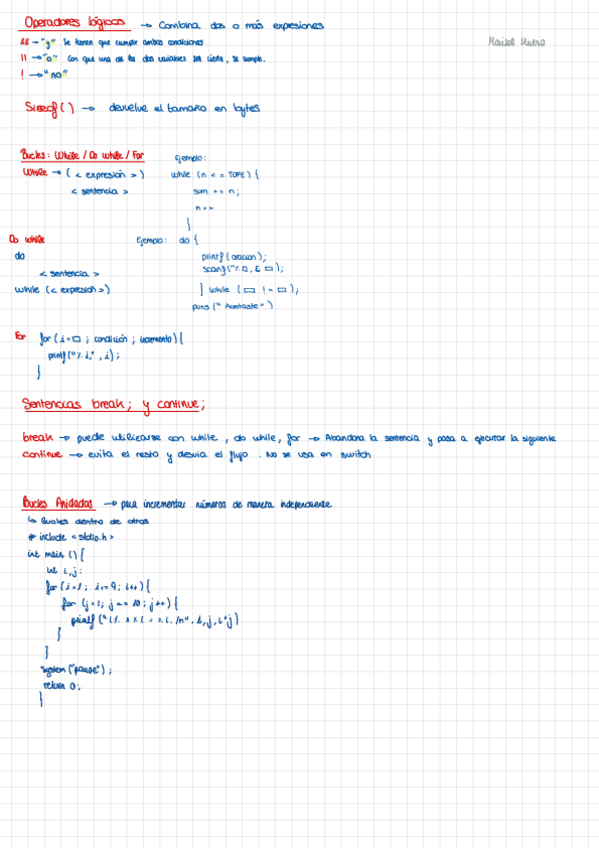 Operadores lógicos → Combina dos o más expresiones
&& → "y" Se tienen que cumplir ambas condiciones
|| → "o" Con que una de las dos variables sea cierta, se cumple.
! → "no"
Sizeof ( ) → devuelve el tamaño en bytes
Bucles: While / Do while / For
While → ( < expresión > )
< sentencia >
Ejemplo:
while (n <= TOPE) {
sum += n;
}
Do while
do
< sentencia >
while (< expresión >)
Ejemplo: do {
printf ( oración );
scanf ("% □, & □ );
} while ( □ != □ );
puts ("Acertaste")
For for ( i=□ ; condición ; incremento) {
printf ("% i," , i) ;
}
Sentencias break; y continue;
break → puede utilizarse con while , do while, for → Abandona la sentencia y pasa a ejecutar la siguiente
continue → evita el resto y desvía el flujo . No se usa en switch
Bucles Anidados → para incrementar números de manera independiente
↳ Bucles dentro de otros
# include <stdio.h>
int main () {
int i, j;
for (i=1; i<=9; i++) {
for (j=1; j<=10; j++) {
}
}
system ("pause") ;
return 0;
}